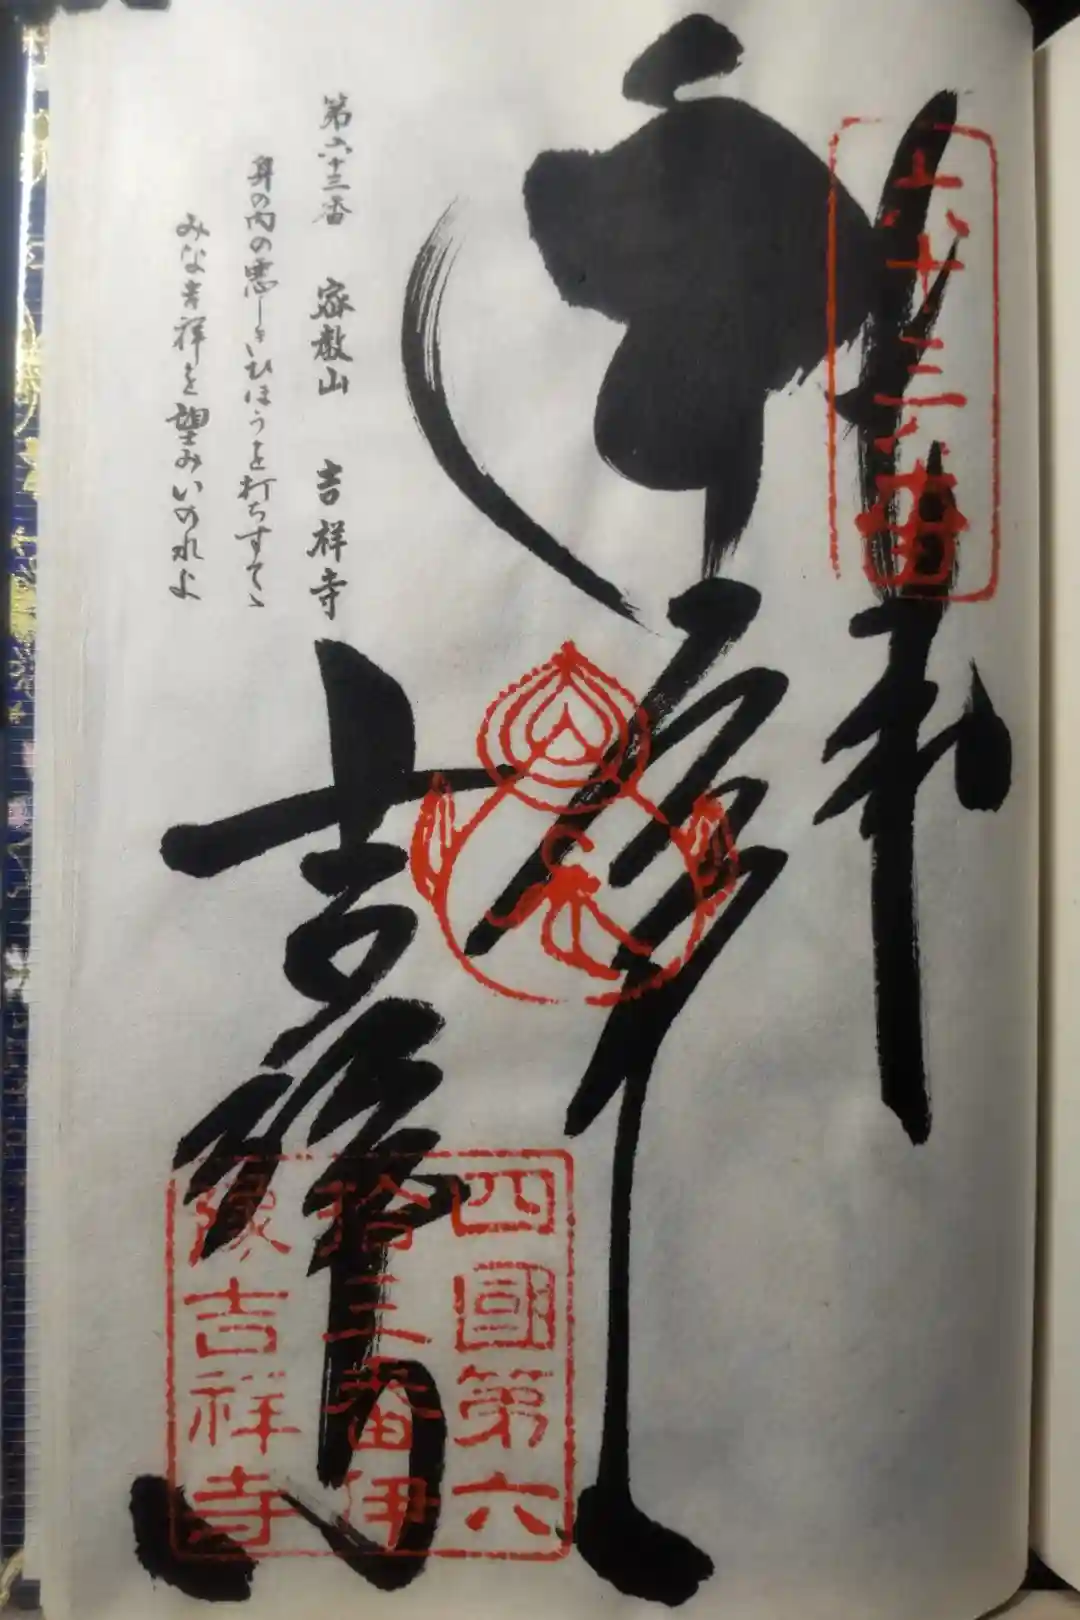 六十三番
第六十三番 密教山 吉祥寺
身の内の悪しきひほうを打ちすてゝ
みな吉祥を望みいのれよ
吉祥寺
四國第六
拾三番伊
豫吉祥寺